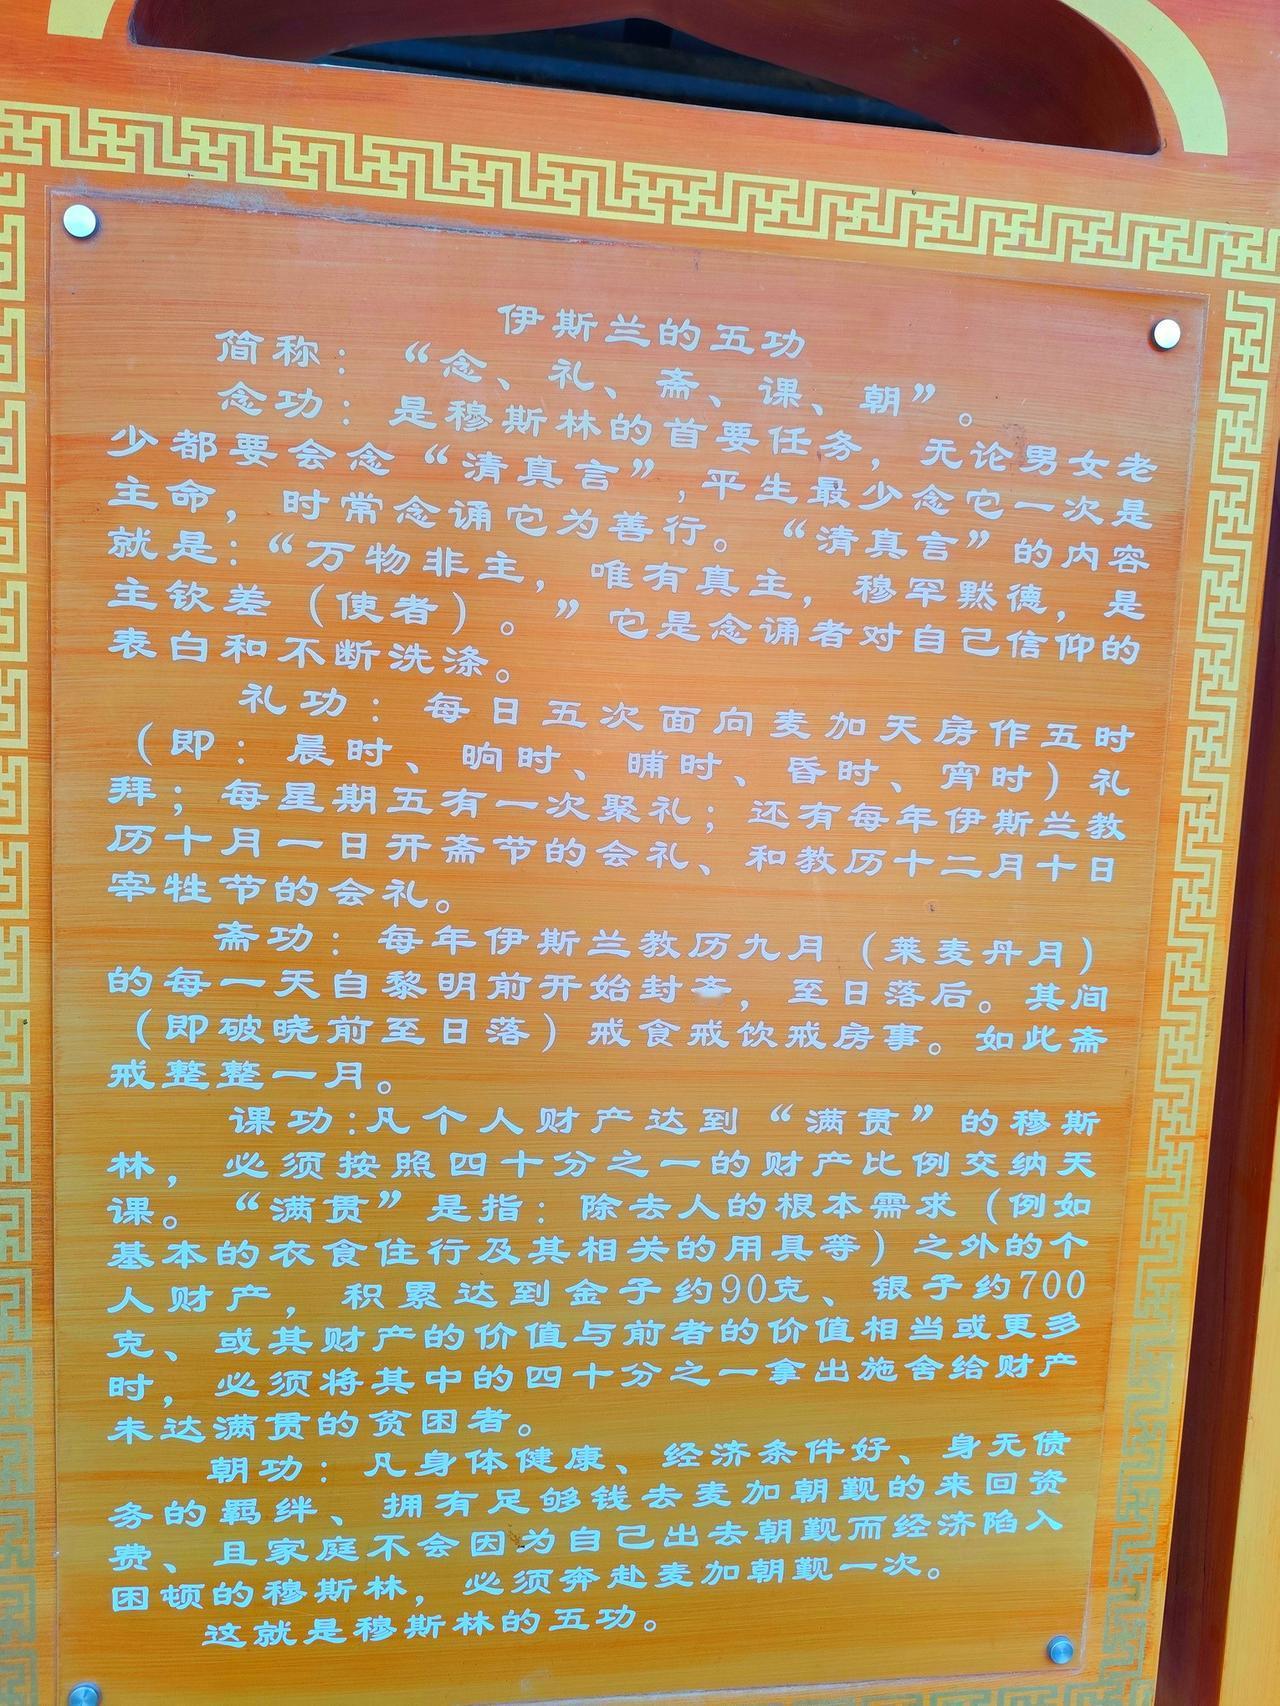 伊斯兰的五功
简称：“念、礼、斋、课、朝”。
念功：是穆斯林的首要任务，无论男女老
少都要会念“清真言”，平生最少念它一次是
主命，时常念诵它为善行。“清真言”的内容
就是：“万物非主，唯有真主，穆罕默德，是
主钦差（使者）。”它是念诵者对自己信仰的
表白和不断洗涤。
礼功：每日五次面向麦加天房作五时
（即：晨时、晌时、晡时、昏时、宵时）礼
拜；每星期五有一次聚礼；还有每年伊斯兰教
历十月一日开斋节的会礼、和教历十二月十日
宰牲节的会礼。
斋功：每年伊斯兰教历九月（莱麦丹月）
的每一天自黎明前开始封斋，至日落后。其间
（即破晓前至日落）戒食戒饮戒房事。如此斋
戒整整一月。
课功：凡个人财产达到“满贯”的穆斯
林，必须按照四十分之一的财产比例交纳天
课。“满贯”是指：除去人的根本需求（例如
基本的衣食住行及其相关的用具等）之外的个
人财产，积累达到金子约90克、银子约700
克、或其财产的价值与前者的价值相当或更多
时，必须将其中的四十分之一拿出施舍给财产
未达满贯的贫困者。
朝功：凡身体健康、经济条件好、身无债
务的羁绊、拥有足够钱去麦加朝觐的来回资
费、且家庭不会因为自己出去朝觐而经济陷入
困顿的穆斯林，必须奔赴麦加朝觐一次。
这就是穆斯林的五功。